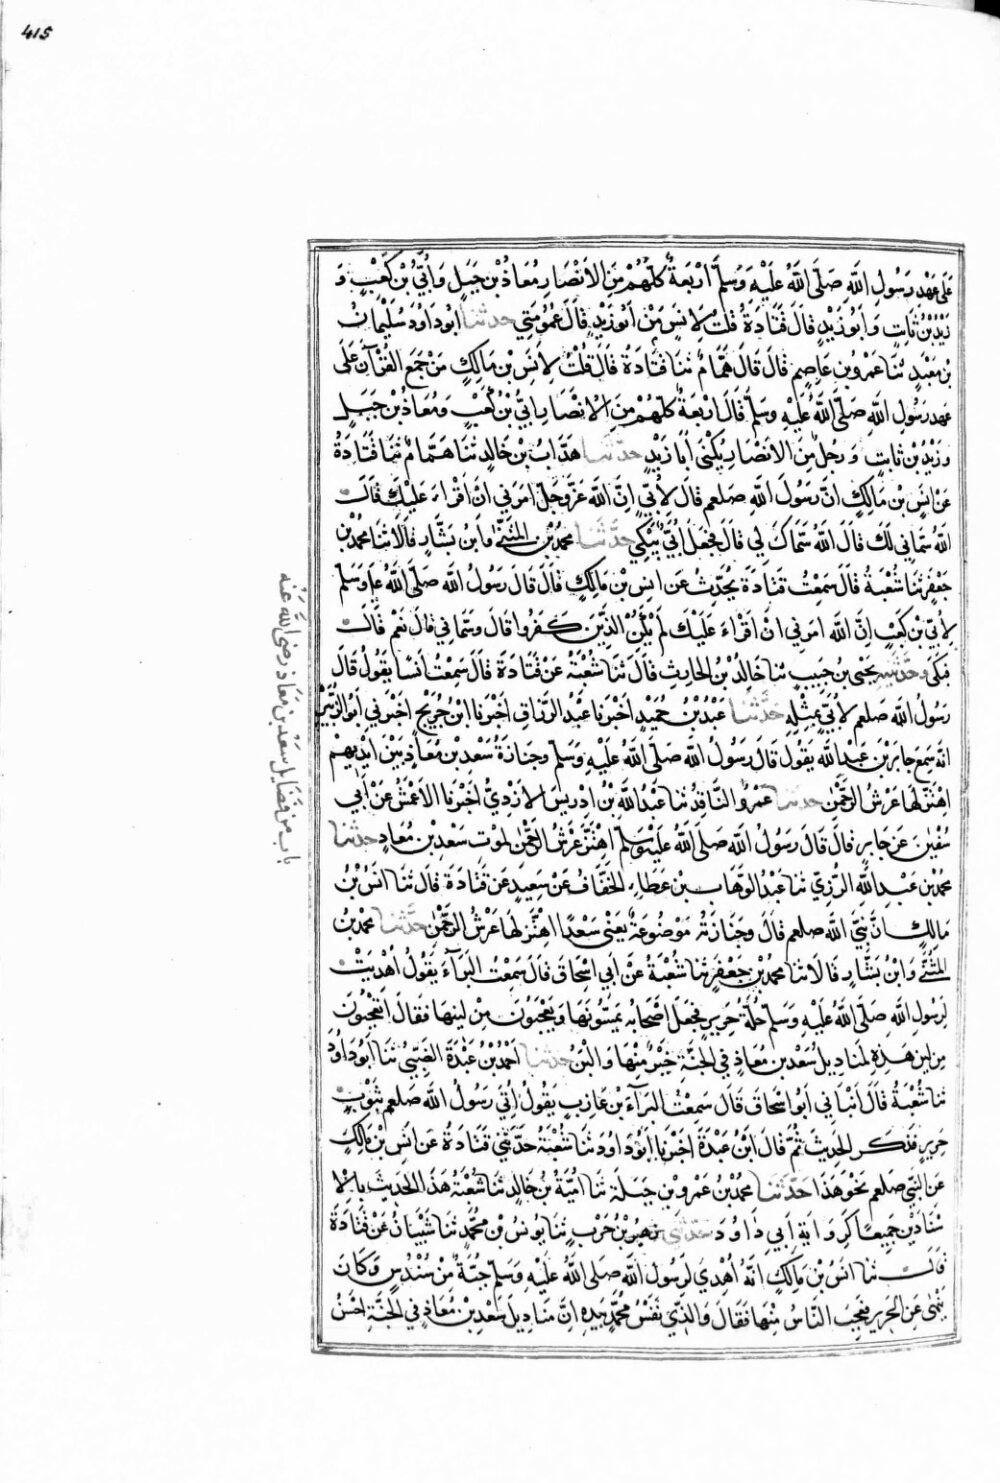 415
على عهد رسول الله صلى الله عليه وسلم اربعة كلهم من الانصار معاذ بن جبل وابي بن كعب و
زيد بن ثابت وابو زيد قال قتادة قلت لانس من ابو زيد قال عمومتي حدثنا ابو داود سليمان
بن معبد ثنا عمرو بن عاصم قال قال همام ثنا قتادة قال قلت لانس بن مالك من جمع القرآن على
عهد رسول الله صلى الله عليه وسلم قال اربعة كلهم من الانصار ابي بن كعب ومعاذ بن جبل
وزيد بن ثابت ورجل من الانصار يكنى ابا زيد حدثنا هداب بن خالد ثنا همام ثنا قتادة
عن انس بن مالك ان رسول الله صلعم قال لابي ان الله عز وجل امرني ان اقراء عليك قال
الله سماني لك قال الله سماك لي قال فجعل ابي يبكي حدثنا محمد بن المثنى وابن بشار قالا ثنا محمد بن
جعفر ثنا شعبة قال سمعت قتادة يحدث عن انس بن مالك قال قال رسول الله صلى الله علم وسلم
لابي بن كعب ان الله امرني ان اقراء عليك لم يكن الذين كفروا قال وسماني قال نعم قال
فبكى وحدثنيه يحيى بن حبيب ثنا خالد بن الحارث قال ثنا شعبة عن قتادة قال سمعت انسا يقول قال
رسول الله صلعم لابي بمثله حدثنا عبد بن حميد اخبرنا عبد الرزاق اخبرنا ابن جريج اخبرني ابو الزبير
انه سمع جابر بن عبد الله يقول قال رسول الله صلى الله عليه وسلم وجنازة سعد بن معاذ بين ايديهم
اهتز لها عرش الرحمن حدثنا عمرو الناقد ثنا عبد الله بن ادريس الازدي اخبرنا الاعمش عن ابي
سفين عن جابر قال قال رسول الله صلى الله عليه وسلم اهتز عرش الرحمن لموت سعد بن معاذ حدثنا
محمد بن عبد الله الرزي ثنا عبد الوهاب بن عطاء الخفاف عن سعيد عن قتادة قال ثنا انس بن
مالك ان نبي الله صلعم قال وجنازته موضوعة يعني سعدا اهتز لها عرش الرحمن حدثنا محمد بن
المثنى وابن بشار قالا ثنا محمد بن جعفر ثنا شعبة عن ابي اسحاق قال سمعت البرآء يقول اهديت
لرسول الله صلى الله عليه وسلم حلة حرير فجعل اصحابه يمسونها ويعجبون من لينها فقال اتعجبون
من لين هذه لمناديل سعد بن معاذ في الجنة خير منها والين حدثنا احمد بن عبدة الضبي ثنا ابو داود
ثنا شعبة قال انباني ابو اسحاق قال سمعت البرآء بن عازب يقول اتي رسول الله صلعم بثوب
حرير فذكر الحديث ثم قال ابن عبدة اخبرنا ابو داود ثنا شعبة حدثني قتادة عن انس بن مالك
عن النبي صلعم نحو هذا حدثنا محمد بن عمرو بن جبلة ثنا امية بن خالد ثنا شعبة هذا الحديث بالا
سنادين جميعا كرواية ابي داود حدثني زهير بن حرب ثنا يونس بن محمد ثنا شيبان عن قتادة
قال ثنا انس بن مالك انه اهدي لرسول الله صلى الله عليه وسلم جبة من سندس وكان
ينهى عن الحرير فعجب الناس منها فقال والذي نفس محمد بيده ان مناديل سعد بن معاذ في الجنة احسن
باب من فضايل سعد بن معاذ رضى الله عنه